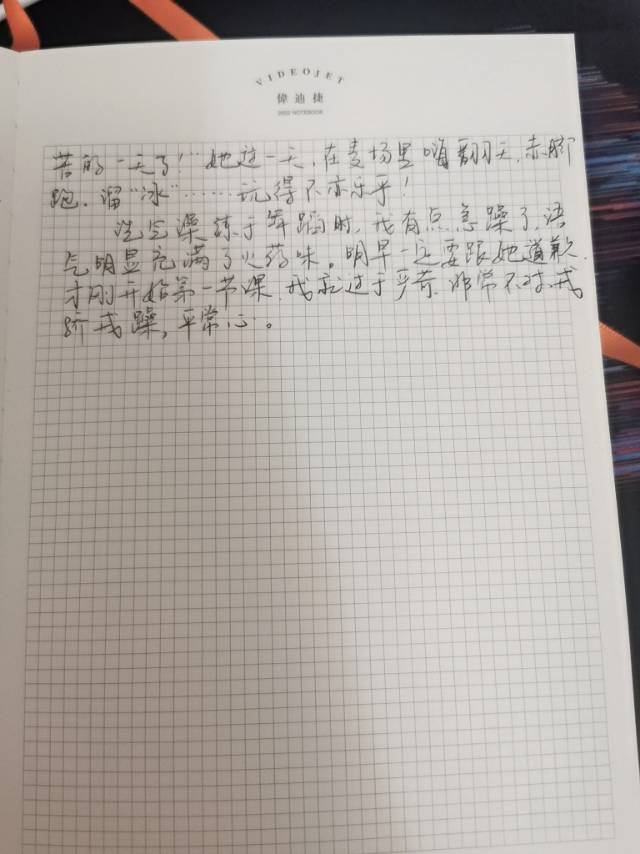 VIDEOJET
偉迪捷
2022 NOTEBOOK
苦的一天了！她这一天，在麦场里嗨翻天，赤脚
跑、溜“冰”……玩得不亦乐乎！
洗完澡练手舞蹈时，我有点急躁了，语
气明显充满了火药味。明早一定要跟她道歉，
才刚开始第一节课，我就过于严苛，非常不对，戒
骄戒躁，平常心。